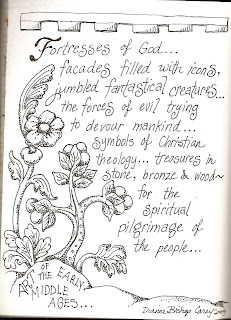 Fortresses of God...
facades filled with icons,
jumbled fantastical creatures...
the forces of evil trying
to devour mankind...
symbols of Christian
theology... treasures in
stone, bronze & wood~
for the
spiritual
pilgrimage of
the people...
ART OF
THE EARLY
MIDDLE
AGES...
Dianne Bishop Carey